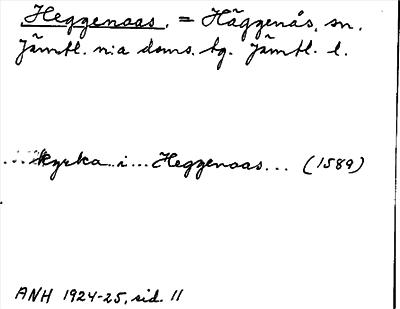 Heggenoas. = Häggenås, sn.
Jämtl. n:a doms. tg. Jämtl. l.
... kyrka i... Heggenoas... (1589)
ANH 1924-25, sid. 11